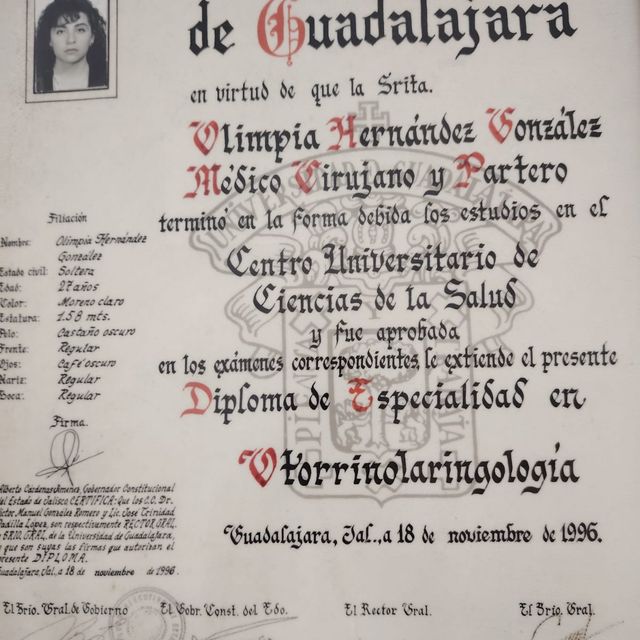 de Guadalajara
en virtud de que la Srita.
Olimpia Hernández González
Médico Cirujano y Partero
terminó en la forma debida los estudios en el
Centro Universitario de
Ciencias de la Salud
y fue aprobada
en los exámenes correspondientes, le extiende el presente
Diploma de Especialidad en
Otorrinolaringología
Guadalajara, Jal., a 18 de noviembre de 1996.
Filiación
Nombre: Olimpia Hernández
González
Estado civil: Soltera
Edad: 27 años
Color: Moreno claro
Estatura: 1.58 mts.
Pelo: Castaño oscuro
Frente: Regular
Ojos: Café oscuro
Nariz: Regular
Boca: Regular
Firma.
Alberto Cárdenas Jiménez, Gobernador Constitucional
del Estado de Jalisco CERTIFICA: que los C.C. Dr.
Víctor Manuel González Romero y Lic. José Trinidad
Padilla López, son respectivamente RECTOR GRAL.
y SRIO. GRAL. de la Universidad de Guadalajara,
y que son suyas las firmas que autorizan el
presente DIPLOMA.
Guadalajara, Jal., a 18 de noviembre de 1996.
El Srio. Gral. de Gobierno El Gobr. Const. del Edo. El Rector Gral. El Srio. Gral.